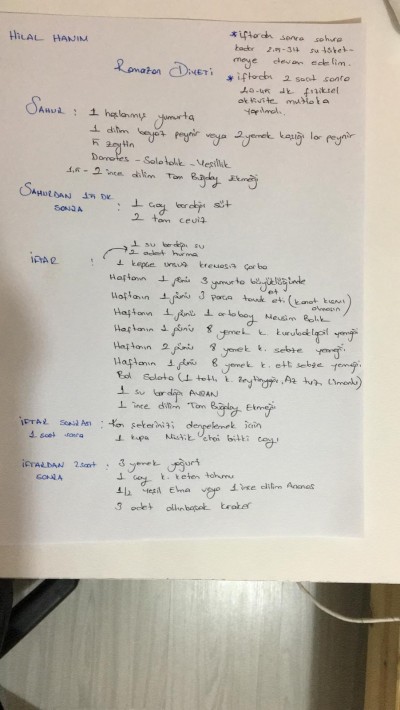 HİLAL HANIM
* iftardan sonra sahura
kadar 2.5-3 lt su tüket-
meye devam edelim.
* iftardan 2 saat sonra
40-45 dk fiziksel
aktivite mutlaka
yapılmalı.
Ramazan DİYETİ
SAHUR : 1 haşlanmış yumurta
1 dilim beyaz peynir veya 2 yemek kaşığı lor peynir
5 zeytin
Domates - Salatalık - Yeşillik
1,5 - 2 ince dilim Tam Buğday Ekmeği
SAHURDAN DK SONRA : 1 çay bardağı süt
2 tam ceviz
İFTAR : 1 su bardağı su
1 adet hurma
1 kepçe unsuz kremasız çorba
Haftanın 1 günü 3 yumurta büyüklüğünde et
Haftanın 1 günü 3 parça tavuk eti (kanat kısmı olmasın)
Haftanın 1 günü 1 orta boy Mevsim Balık
Haftanın 1 günü 8 yemek k. kurubaklagil yemeği
Haftanın 2 günü 8 yemek k. sebze yemeği
Haftanın 1 günü 8 yemek k. etli sebze yemeği
Bol Salata (1 tatlı k. zeytinyağı, Az tuz, limonlu)
1 su bardağı AYRAN
1 ince dilim Tam Buğday Ekmeği
İFTAR SONRASI : Kan şekerinizi dengelemek için
1 saat sonra 1 kupa Mistik chai bitki çayı
İFTARDAN 2 saat SONRA : 3 yemek yoğurt
1 çay k. keten tohumu
1/2 Yeşil Elma veya 1 ince dilim Ananas
3 adet altınbaşak kraker